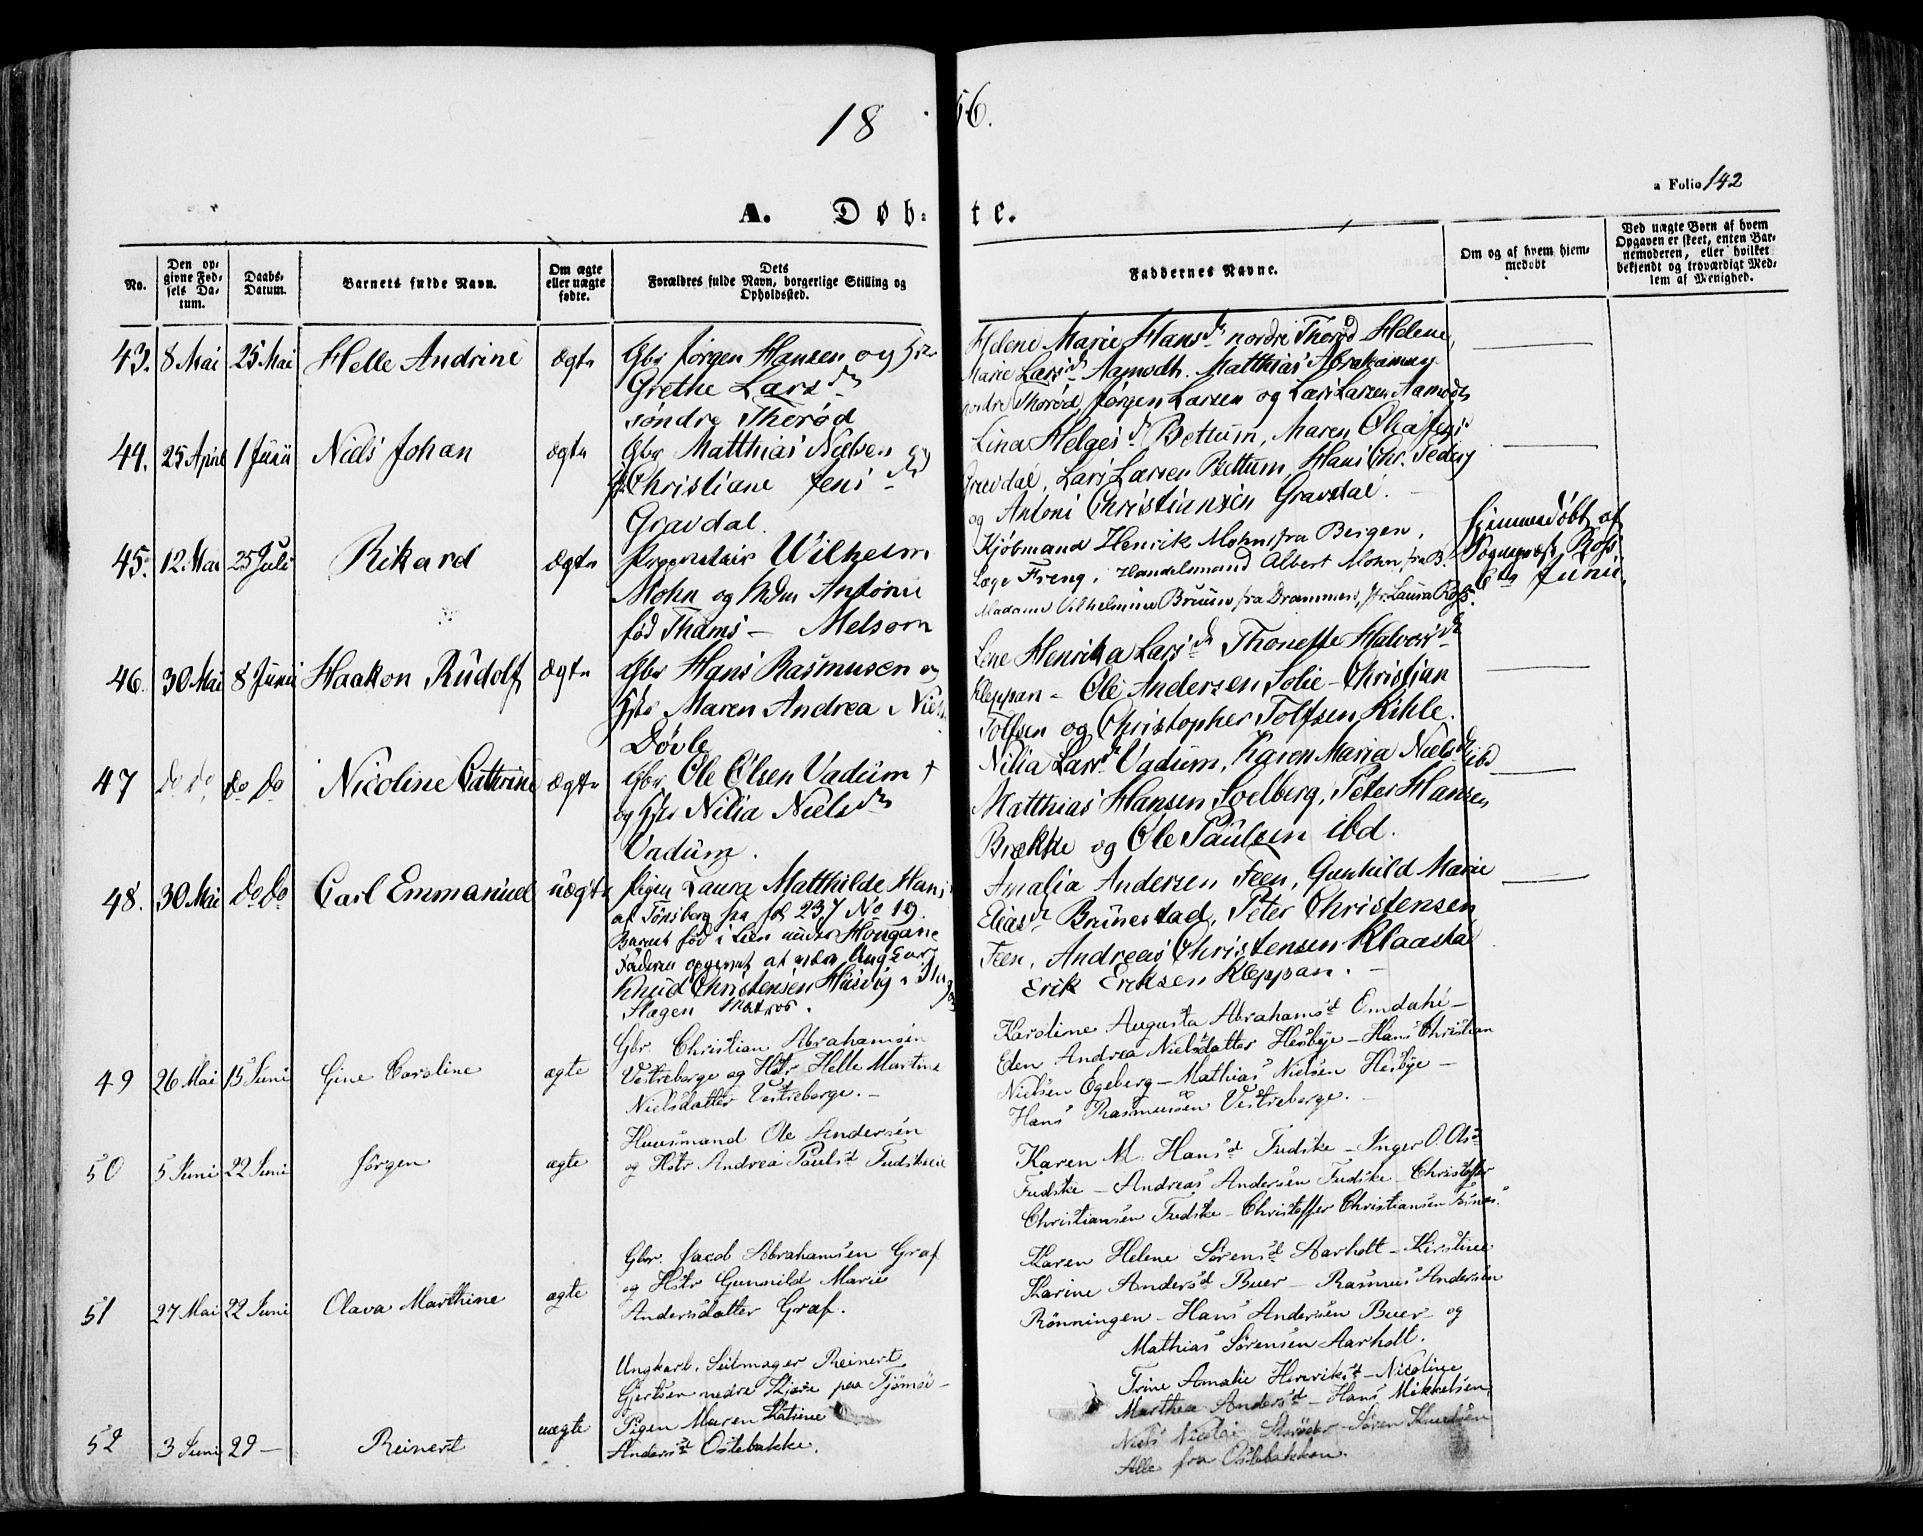 18 56.
a Folio 142
A. Døb- te.
No.
Den op-
givne Fød-
sels Da-
tum.
Daabs-
Datum.
Barnets fulde Navn.
Om ægte
eller uægte
fødte.
Dets
Forældres fulde Navn, borgerlige Stilling og
Opholdssted.
Faddernes Navne.
Om og af hvem hjem-
medøbt
Ved uægte Børn af hvem
Opgaven er skeet, enten Bar-
nemoderen, eller hvilket
bekjendt og troværdigt Med-
lem af Menighed.
43. 8 Mai 25 Mai Helle Andrine ægte
Gbr Jørgen Hansen og
Grethe Larsdr
søndre Thorød
Helene Marie Hansdr nordre Thorød Helene
Marie Larsdr Aamodt. Matthias Abrahamsen
nordre Thorød, Jørgen Larsen og Lars Larsen Aamodt
44. 25 April 1 Juni Niels Johan ægte
Gbr Matthias Nielsen og
Christiane Jensdr
Gravdal.
Lina Helgesdr Bettum, Maren Olea Jensdr
Gravdal, Lars Larsen Bettum, Hans Chr. Peders
og Antoni Christiansen Gravdal.
45. 12 Mai 25 Juli Rikard ægte
Proprietair Wilhelm
Mohn og Mdm Antonie
fød Thams - Melsom
Kjøbmand Henrik Mohn fra Bergen,
Læge Freng, Handelsmand Albert Mohn fra B.
Madame Vilhelmine Bruun fra Drammen, Fr. Laura Roß.
hjemmedøbt af
Sognepræst Roß
6te Juni.
46. 30 Mai 8 Juni Haakon Rudolf ægte
Gbr Hans Rasmusen og
Hstr Maren Andrea Niels
Døvle
Lene Henrika Larsdr Thonette Halvorsdr
Kleppan - Ole Andersen Solie - Christian
Tolfsen og Christopher Tolfsen Kihle.
47 do do do do Nicoline Cathrine ægte
Gbr Ole Olsen Vadum †
og Hstr Nilia Nielsdr
Vadum.
Nilia Larsdr Vadum, Karen Maria Nielsdr ibd
Matthias Hansen Soelberg, Peter Hansen
Brække og Ole Paulsen ibd.
48. 30 Mai do do Carl Emmanuel uægte
Pigen Laura Matthilde Hans
af Tønsberg fra fol 237 No 19.
Barnet fød i Lien under Hougane
Faderen opgivet at være Ungkarl
Knud Christensen Husvig i
Slagen Matros.
Amalia Andersen Feen, Gunhild Marie
Eliasdr Brunestad, Peter Christensen
Feen, Andreas Christensen Klaastad
Erik Eriksen Kleppan. -
49 26 Mai 15 Juni Gine Caroline ægte
Gbr. Christian Abrahamsen
Vestreberge og Hstr Helle Martine
Nielsdatter Vestreberge. -
Karoline Augusta Abrahamsd Omdahl -
Eden Andrea Nielsdatter Hesbye - Hans Christian
Nielsen Egeberg - Mathias Nielsen Hesbye -
Hans Rasmussen Vestreberge. -
50 5 Juni 22 Juni Jørgen ægte
Huusmand Ole Andersen
og Hstr Andrea Paulsd Fudskeie
Karen M. Hansd Fudske - Inger O. Olsd
Fudske - Andreas Andersen Fudske - Christoffer
Christiansen Fudske - Christoffer Christiansen
51 27 Mai 22 Juni Olava Marthine ægte
Gbr. Jacob Abrahamsen Graf
og Hstr Gunhild Marie
Andersdatter Graf.
Karen Helene Sørensd Aarholt - Kirstine
Karine Andersd Buer - Rasmus Andersen
Rønningen - Hans Andersen Buer og
Mathias Sørensen Aarholt.
52 3 Juni 29 - Reinert uægte
Ungkarl. Seilmager Reinert
Gjertsen nedre Kjære paa Tjømø -
Pigen Maren Katrine
Andersd Ostebakke.
Trine Amalie Henriksd - Nicoline
Marthea Andersd - Hans Mikkelsen
Niels Nicolai - Søren Knudsen
Alle fra Ostebakken.